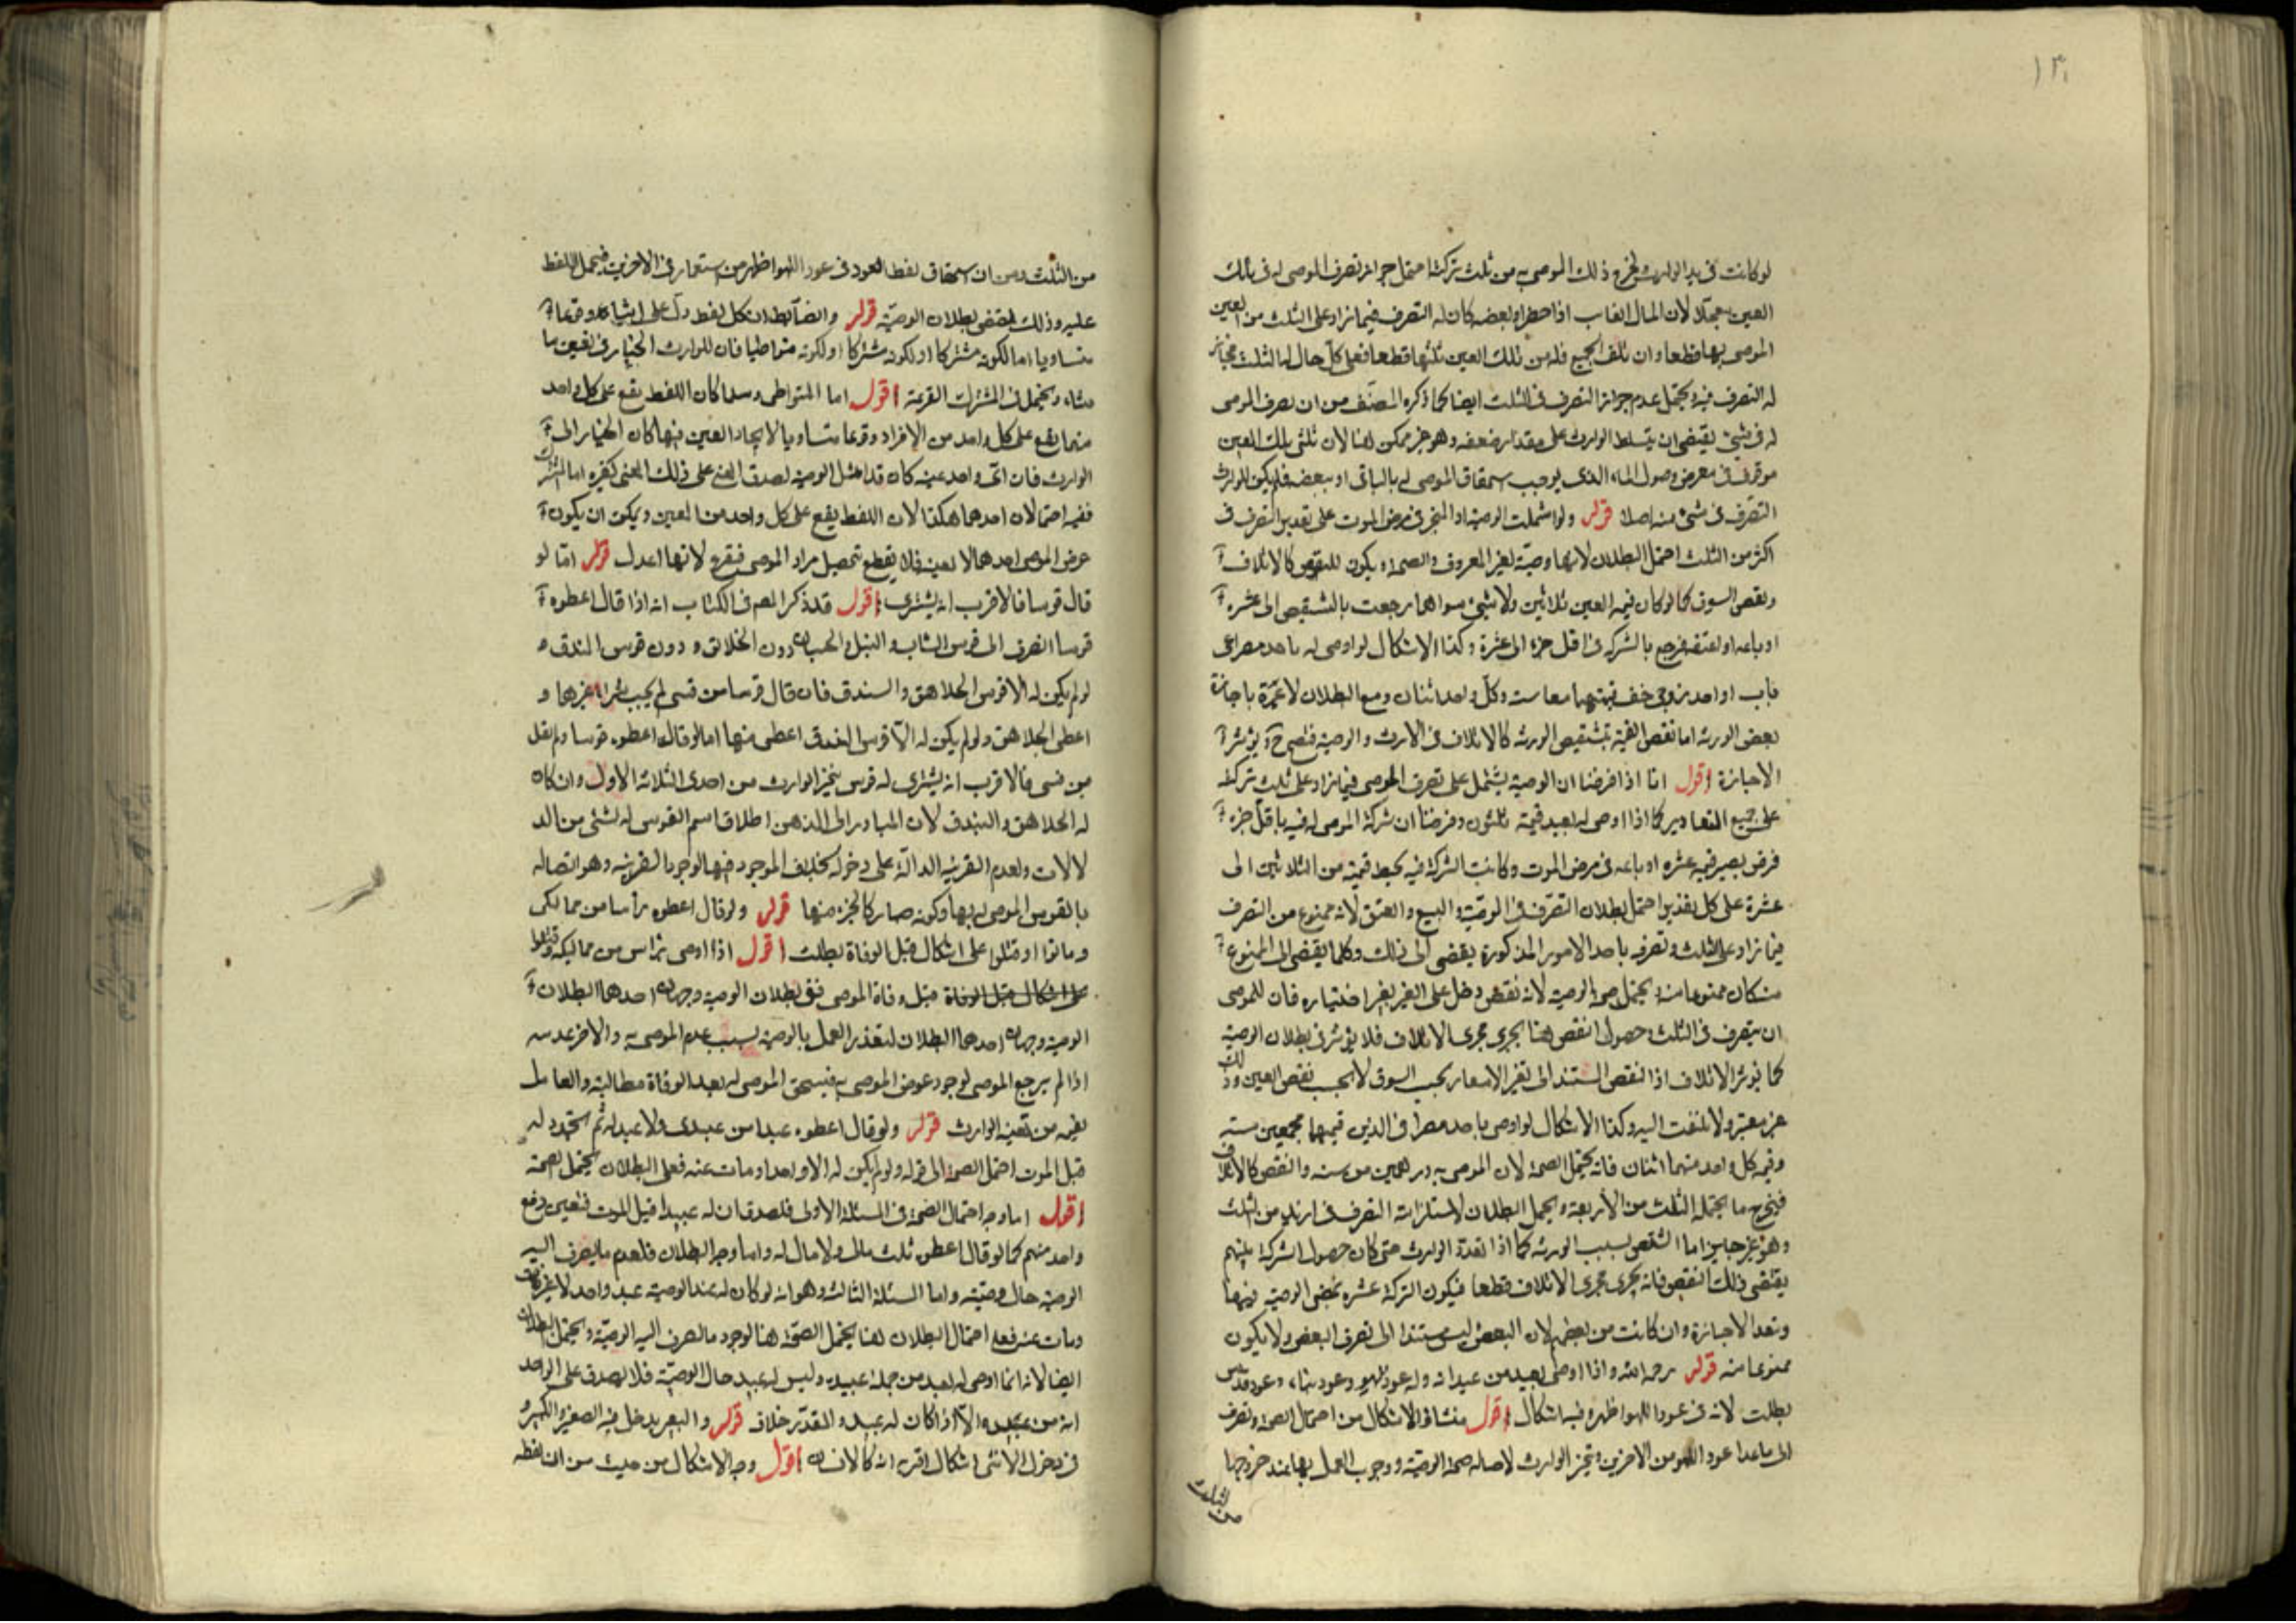 ١٣١
لو كانت في يد الوارث لخرج ذلك الموصى به من ثلث تركته احتمل جواز تصرف الموصى له في ثلث
العين معجلا لان المال الغايب اذا حضر او بعضه كان له التصرف فيما زاد على الثلث من العين
الموصى بها قطعا وان تلف الجميع فله من تلك العين ثلثها قطعا فعلى كل حال له الثلث فيجاز
له التصرف فيه ويحتمل عدم جواز التصرف في الثلث ايضا كما ذكره المصنف من ان تصرف الموصى
له في شيء يقتضي ان يتسلط الوارث على مقدار ضعفه وهو غير ممكن هنا لان ثلثي تلك العين
موقوف في معرض وصول المال الذي يوجب استحقاق الموصى له بالباقي او ببعضه فلم يكن للوارث
التصرف في شيء منه اصلا قوله ولو اشتملت الوصية او المنجز في مرض الموت على تقدير التصرف في
اكثر من الثلث احتمل البطلان لانها وصية بغير المعروف والصحة ويكون للنقص كالاتلاف
ونقص السوق كما لو كان قيمة العين ثلاثين ولا شيء سواها رجعت بالتشقيص الى عشرة
او باعه او اعتقه فرجع بالشركة في اقل جزء الى عشرة وكذا الاشكال لو اوصى له باحد مصراعي
باب او احد زوجي خف قيمتهما معا ستة وكل واحد اثنان ومع البطلان لا عبرة باجازة
بعض الورثة اما نقص القيمة بتشقيص الورثة كالاتلاف في الارث والوصية فتصح
الاجازة اقول انا اذا فرضنا ان الوصية يشتمل على تصرف الموصى فيما زاد على ثلث تركته
على جميع التقادير كما اذا اوصى له بعبد قيمته ثلثون وفرضنا ان شركة الموصى له فيه باقل جزء
فرض يصير قيمته عشرة او باعه في مرض الموت وكانت الشركة فيه يحيط قيمته من الثلاثين الى
عشرة على كل تقدير احتمل بطلان التصرف في الوصية والبيع والعتق لانه ممنوع من التصرف
فيما زاد على الثلث وتصرفه باحد الامور المذكورة يفضي الى ذلك وكلما يفضي الى الممنوع
منه كان ممنوعا منه ويحتمل صحة الوصية لانه نقص دخل على الغير بغير اختياره فان للموصى
ان يتصرف في الثلث وحصول النقص هنا يجري مجرى الاتلاف فلا يؤثر في بطلان الوصية
كما يؤثر الاتلاف اذ النقص المستند الى تغير الاسعار بحسب السوق لا بحسب نقص العين وذلك
غير معتبر ولا ملتفت اليه وكذا الاشكال لو اوصى باحد مصراعي الذين قيمتهما مجتمعين ستة
وقيمة كل واحد منهما اثنان فانه يحتمل الصحة لان الموصى به درهمين من ستة والنقص كالاتلاف
فيخرج ما يحتمله الثلث من الاربعة ويحتمل البطلان لاستلزامه التصرف في ازيد من الثلث
وهو غير جايز اما النقص بسبب الورثة كما اذا تعدد الوارث حتى كان حصول الشركة بينهم
يقتضي ذلك النقص فانه يجري مجرى الاتلاف قطعا فيكون التركة عشرة يمضي الوصية فيها
وتعد الاجازة وان كانت من بعضهم لان البعض ليس مستندا الى تصرف البعض ولا يكون
ممنوعا منه قوله رحمه الله واذا اوصى بعود من عيدانه وله عود لهو وعود بناء وعود قدس
بطلت لانه في عود اللهو اظهر وفيه اشكال اقول منشاؤ الاشكال من احتمال الصحة وتصرف
الى ما عدا عود اللهو من الاخرين ويتخير الوارث لاصالة صحة الوصية ووجوب العمل بها عند خروجها
من الثلث
من الثلث ومن ان استحقاق لفظ العود في عود اللهو اظهر من استعماله في الاخرين فيحمل اللفظ
عليه وذلك يقتضي بطلان الوصية قوله والضابط ان كل لفظ دل على اشياء وقوعا
متساويا اما لكونه مشتركا او لكونه متواطيا فان للوارث الخيار في تعيين ما
شاء ويحتمل في المشترك القرعة اقول اما المتواطي وسلما كان اللفظ يقع على كل واحد
منهما يقع على كل واحد من الافراد وقوعا متساويا لا ايجاد العين فيها كان الخيار الى
الوارث فان اي واحد عينه كان قد امتثل الوصية لصدق المعنى على ذلك المعنى كغيره اما المشترك
ففيه احتمالان احدهما هكذا لان اللفظ يقع على كل واحد من المعين ويمكن ان يكون
غرض الموصى احدهما لا بعينه فلا يقطع بتحصيل مراد الموصى فيقرع لانها اعدل قوله اما لو
قال قوسا فالاقرب انه يشترى اقول قد ذكر المصنف في الكتاب انه اذا قال اعطوه
قوسا انصرف الى قوس النشاب والنبل والحسبان دون الجلاهق ودون قوس البندق و
لو لم يكن له الا قوس الجلاهق والبندق فان قال قوسا من قسي لم يجب شراء غيرهما و
اعطي الجلاهق ولو لم يكن له الا قوس البندق اعطي منها اما لو قال اعطوه قوسا ولم يقل
من قسي فالاقرب انه يشترى له قوس بتخير الوارث من احدى الثلاثة الاول وان كان
له الجلاهق والبندق لان المبادر الى الذهن اطلاق اسم القوس له لشيء من الد
لالات ولعدم القرينة الدالة على دخوله بخلاف الموجود فيها لوجود القرينة وهو اتصاله
بالقوس الموصى له بها وكونه صار كالجزء منها قوله ولو قال اعطوه رأسا من مماليكي
وماتوا او قتلوا على اشكال قبل الوفاة بطلت اقول اذا اوصى براس من مماليكه وقتلوا
على اشكال قبل الوفاة قبل وفاة الموصى ففي بطلان الوصية وجهان احدهما البطلان
الوصية وجهان احدهما البطلان لتعذر العمل بالوصية بسبب عدم الموصى به والاخر عدمه
اذا لم يرجع الموصى لوجود عوض الموصى به فيستحق الموصى له بعد الوفاة مطالبة والعامل
بقيمة من تعينه الوارث قوله ولو قال اعطوه عبدا من عبيدي ولا عبد له ثم استجدد له
قبل الموت احتمل الصحة الى قوله ولو لم يكن له الا واحد ومات عنه فعلى البطلان يحتمل الصحة
اقول اما وجه احتمال الصحة في المسئلة الاولى فلصدق ان له عبيدا قبل الموت فتعين دفع
واحد منهم كما لو قال اعطوه ثلث مالي ولا مال له واما وجه البطلان فلعدم ما يصرف اليه
الوصية حال وصيته واما المسئلة الثالثة وهو انه لو كان له عند الوصية عبد واحد لا غيره
ومات عنه فعلى احتمال البطلان هنا يحتمل الصحة هنا لوجود ما يصرف اليه الوصية ويحتمل البطلان
ايضا لانه انما اوصى له بعبد من جملة عبيده وليس له عبيد حال الوصية فلا يصدق على الواحد
انه من عبيده الا اذا كان له عبيد والمقدر خلافه قوله والبعير يدخل فيه الصغير والكبير و
في دخول الانثى اشكال اقربه انه كالانسان اقول وجه الاشكال من حيث من ان لفظه